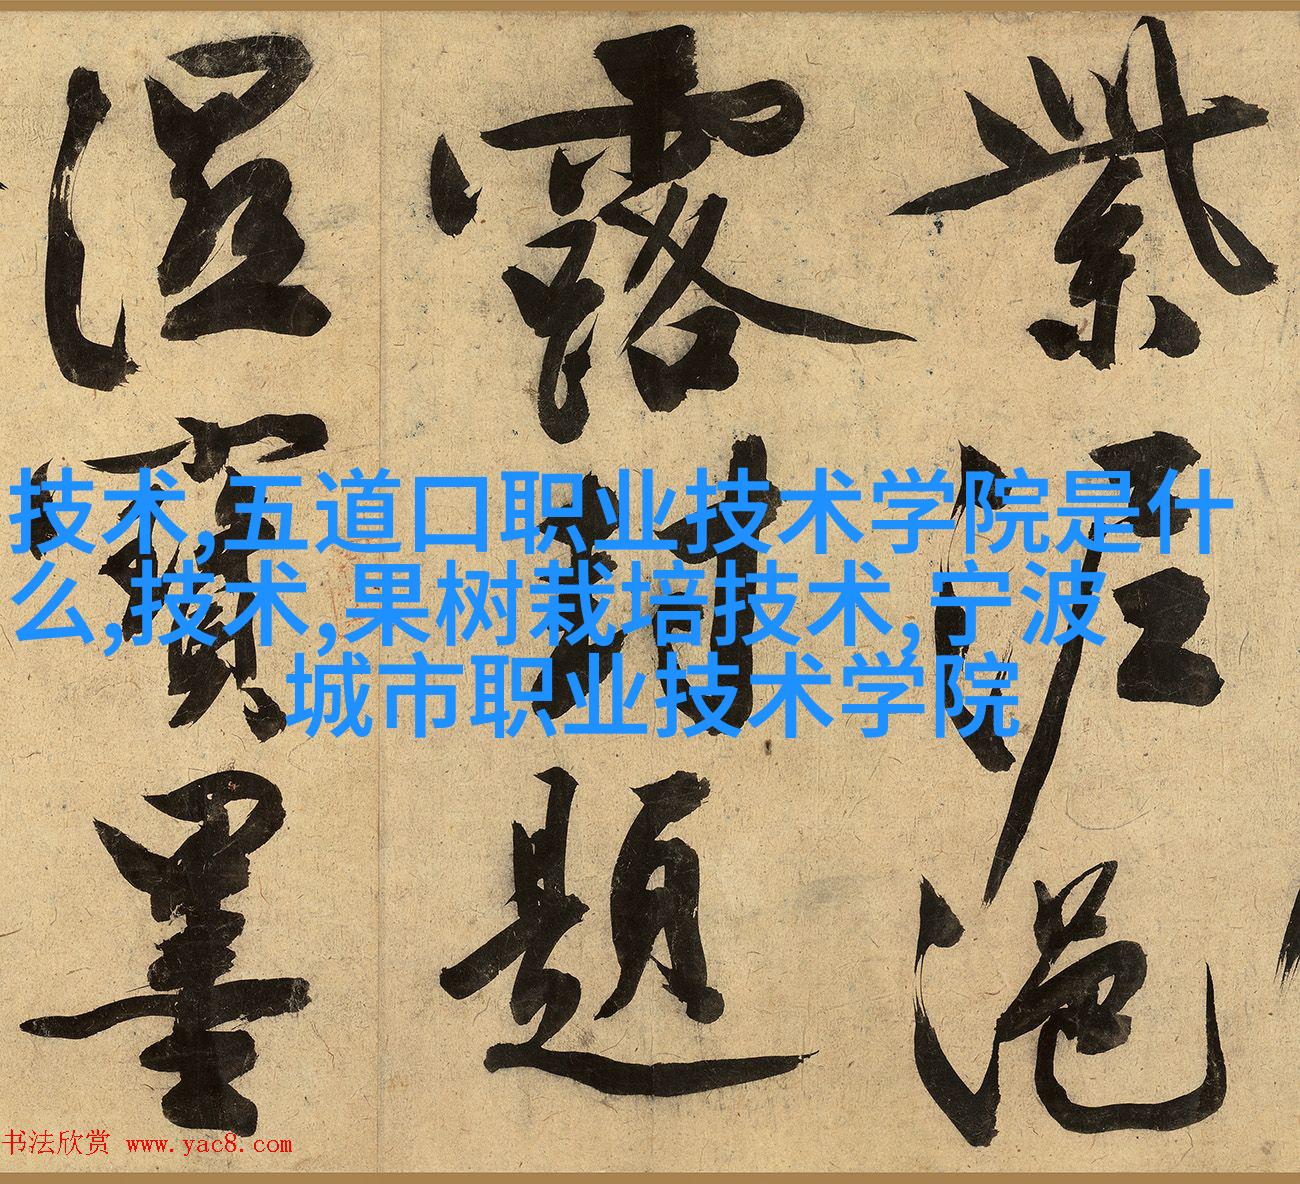 紫泥浥
露封題
溼寶墨
技术,五道口职业技术学院是什
么,技术,果树栽培技术,宁波
城市职业技术学院
书法欣赏 www.yac8.com